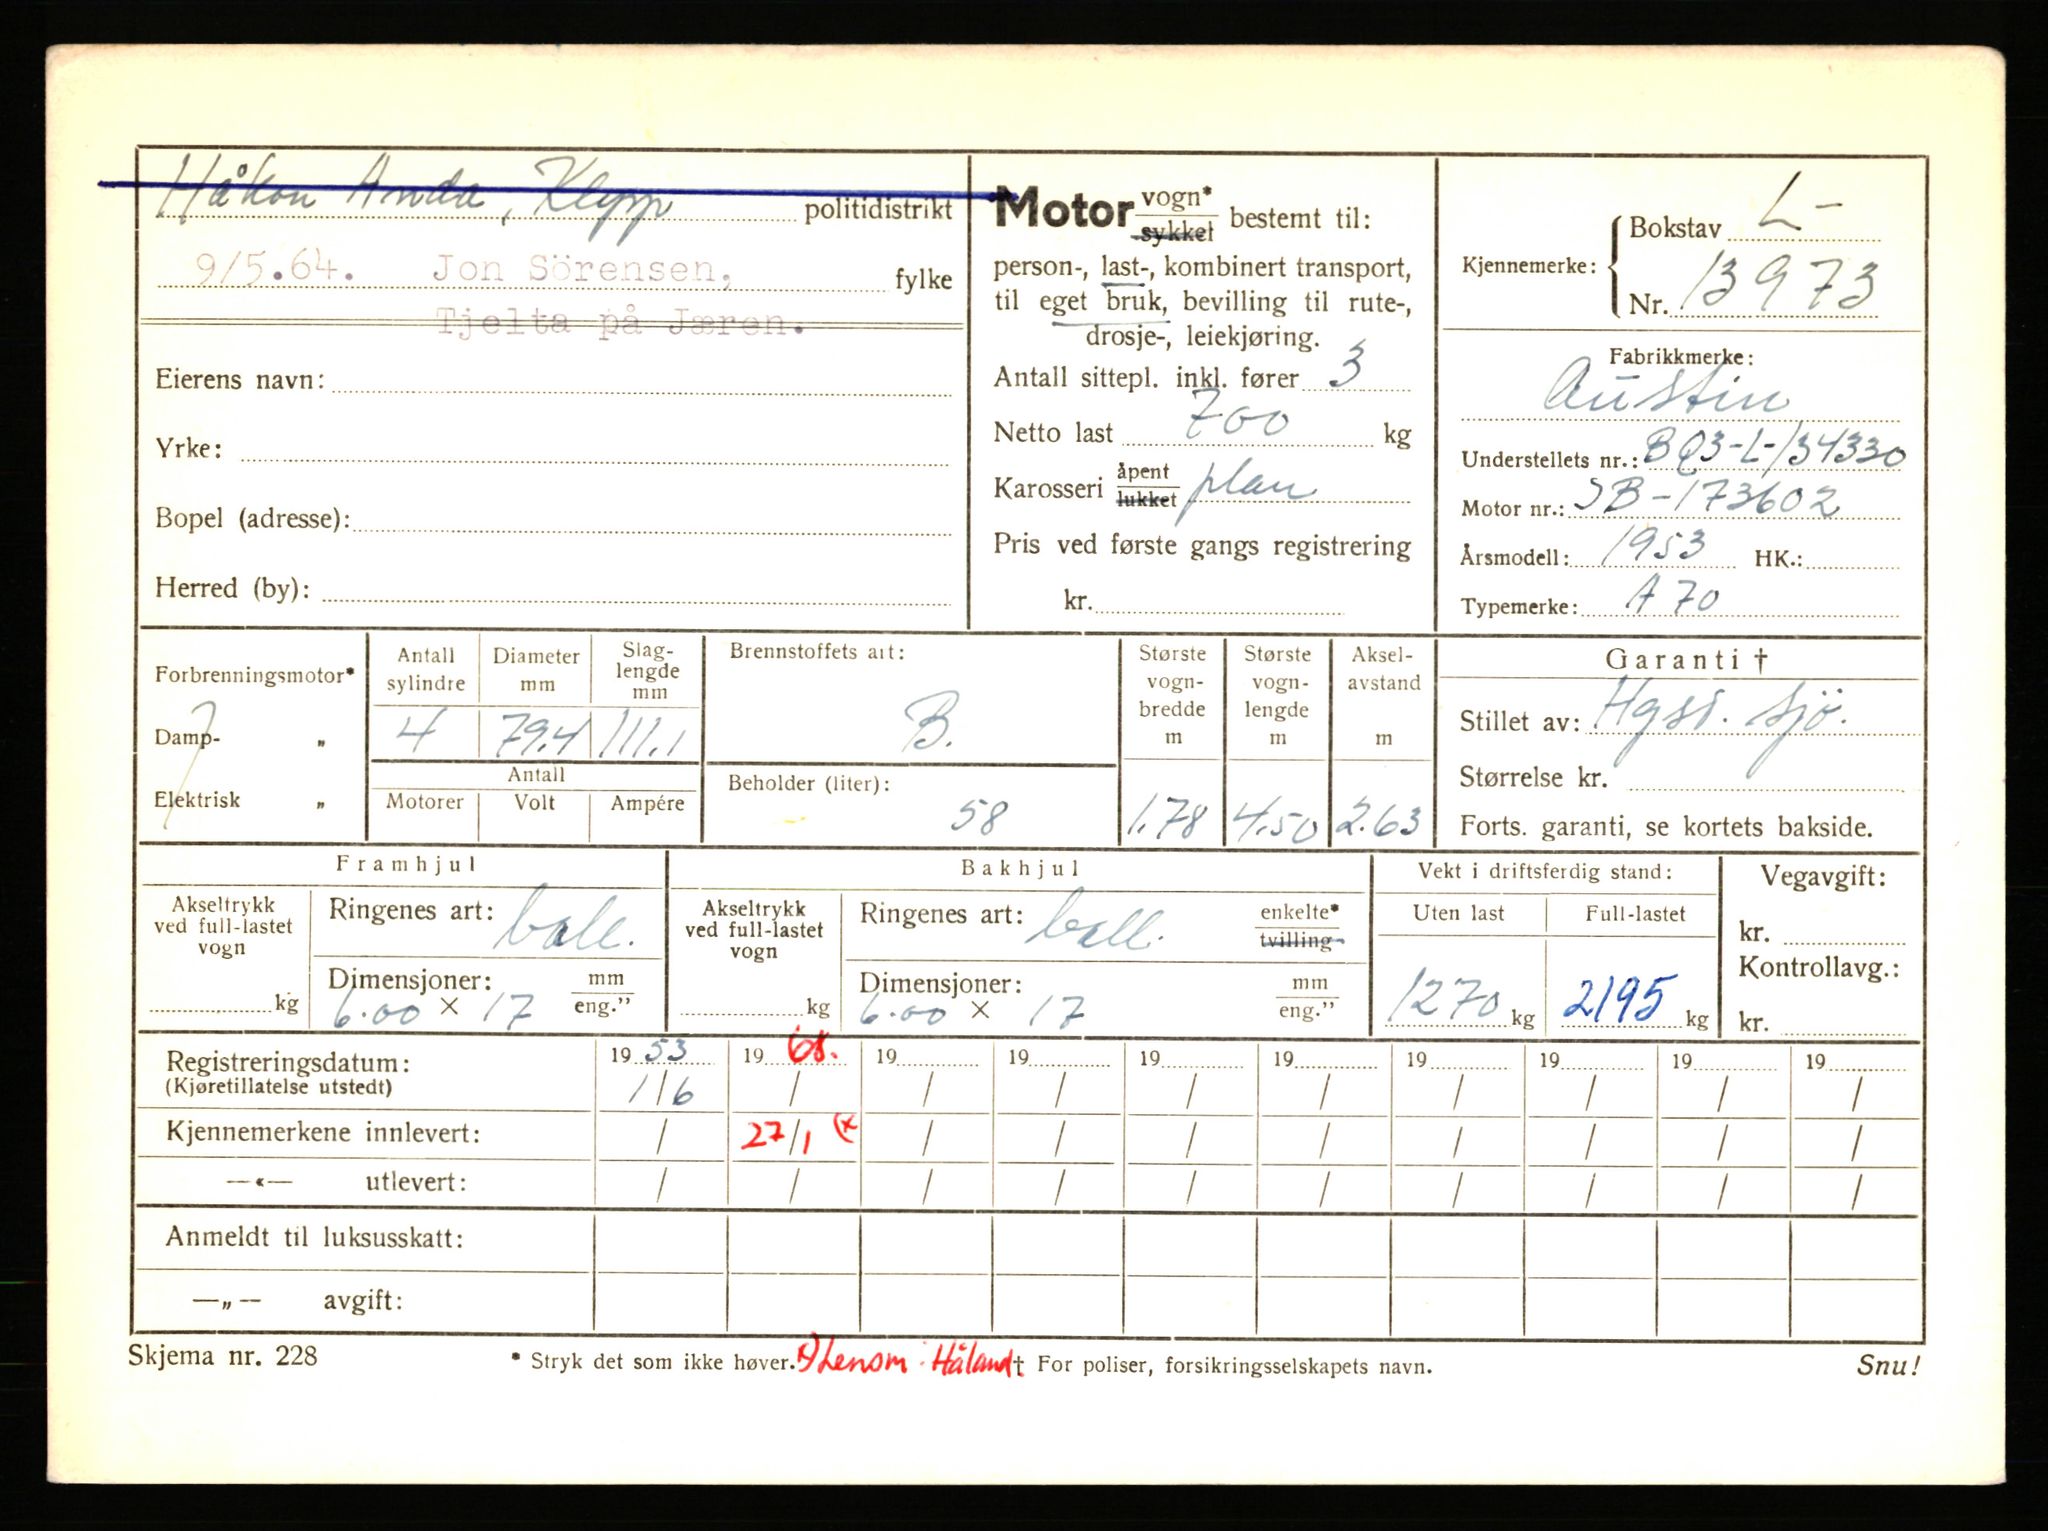 Håkon Anda, Klepp politidistrikt
9/5.64. Jon Sörensen, fylke
Tjelta på Jæren.
Eierens navn:
Yrke:
Bopel (adresse):
Herred (by):
Motor vogn* sykkel bestemt til:
person-, last-, kombinert transport,
til eget bruk, bevilling til rute-,
drosje-, leiekjøring.
Antall sittepl. inkl. fører 3
Netto last 700 kg
Karosseri åpent lukket plan
Pris ved første gangs registrering
kr.
Kjennemerke: Bokstav L-
Nr. 13973
Fabrikkmerke:
Austin
Understellets nr.: BQ3-L-134330
Motor nr.: JB-173602
Årsmodell: 1953 HK.:
Typemerke: A 70
Forbrenningsmotor*
Damp- „
Elektrisk „
Antall sylindre
Diameter mm
Slag-lengde mm
4 79.4 111.1
Antall
Motorer Volt Ampére
Brennstoffets art:
B.
Beholder (liter):
58
Største vogn-bredde m
1.78
Største vogn-lengde m
4.50
Aksel-avstand m
2.63
Garanti †
Stillet av: Hgs. sjö.
Størrelse kr.
Forts. garanti, se kortets bakside.
Framhjul
Akseltrykk ved full-lastet vogn
kg
Ringenes art: ball.
Dimensjoner: mm eng.”
6.00 × 17
Bakhjul
Akseltrykk ved full-lastet vogn
kg
Ringenes art: ball. enkelte* tvilling
Dimensjoner: mm eng.”
6.00 × 17
Vekt i driftsferdig stand:
Uten last Full-lastet
1270 kg 2195 kg
Vegavgift:
kr.
Kontrollavg.:
kr.
Registreringsdatum: 19 53 19 68. 19 19 19 19 19 19 19 19
(Kjøretillatelse utstedt) 1/6 / / / / / / / / /
Kjennemerkene innlevert: / 27/1 (x / / / / / / / /
—«— utlevert: / / / / / / / / / /
Anmeldt til luksusskatt:
—„— avgift:
Skjema nr. 228 * Stryk det som ikke høver. x) Lensm. Håland † For poliser, forsikringsselskapets navn. Snu!